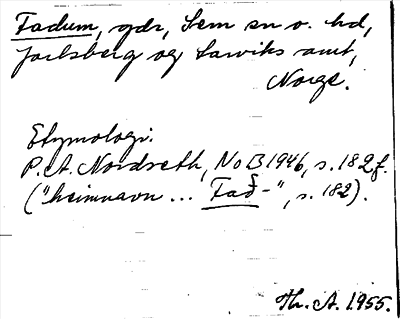 Fadum, gdr, Sem sn o. hd,
Jarlsberg og Larviks amt,
Norge.
Etymologi:
P. A. Nordseth, NoB 1946, s. 182 f.
("heimnavn ... Fað-", s. 182).
Th. A. 1955.